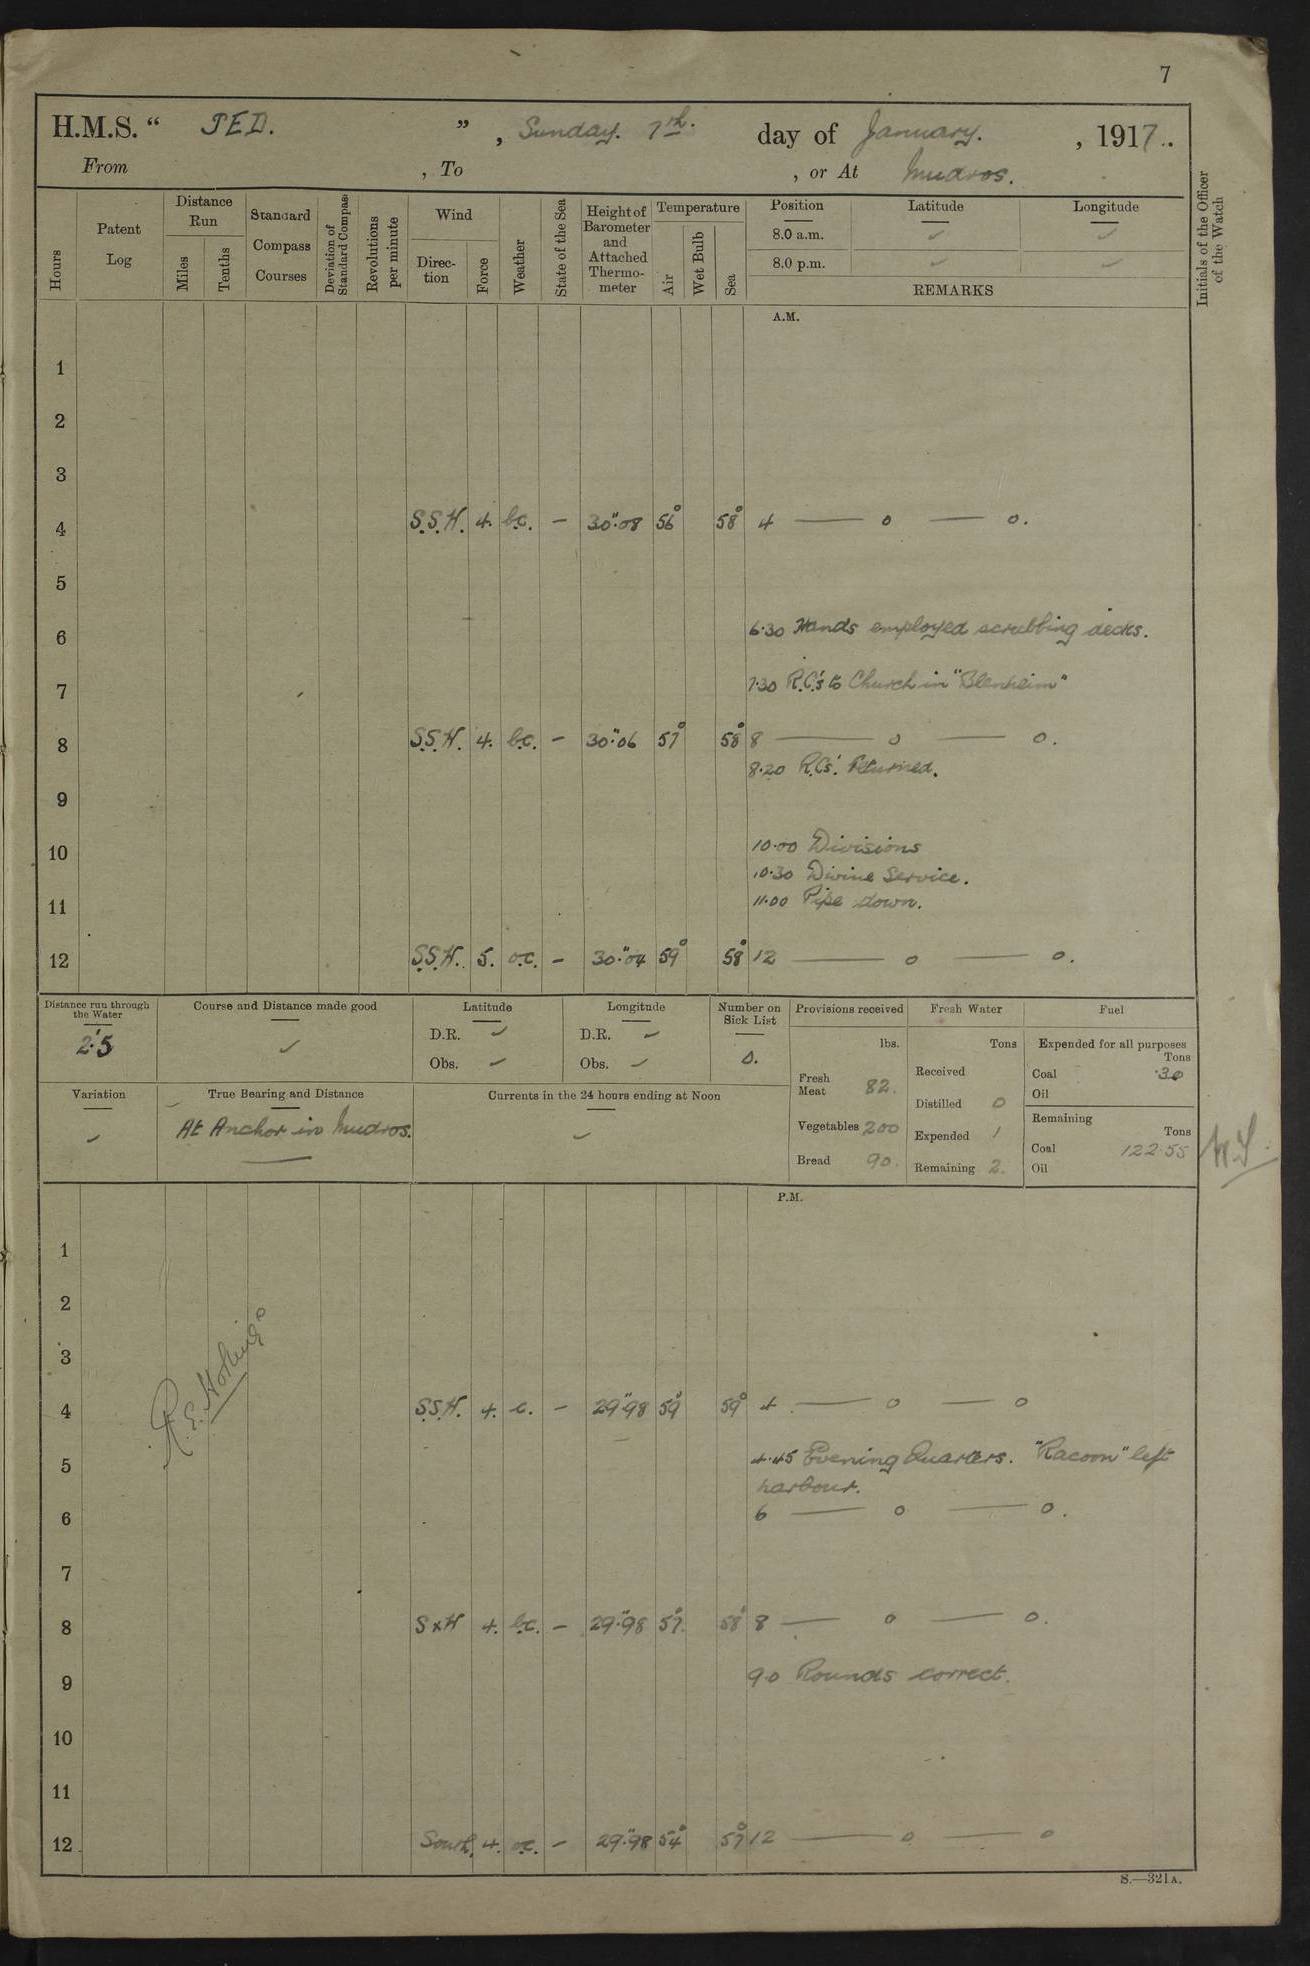 7
H.M.S. " TED. " , Sunday. 7th. day of January. , 1917.
From , To , or At Mudros.
Hours
Patent Log
Distance Run
Miles
Tenths
Standard Compass Courses
Deviation of Standard Compass
Revolutions per minute
Wind
Direction
Force
Weather
State of the Sea
Height of Barometer and Attached Thermometer
Temperature
Air
Wet Bulb
Sea
Position Latitude Longitude
8.0 a.m. ✓ ✓
8.0 p.m. ✓ ✓
REMARKS
Initials of the Officer of the Watch
A.M.
1
2
3
4 S.S.W. 4. b.c. – 30".08 56° 58° 4 — o — o.
5
6 6.30 Hands employed scrubbing decks.
7 7.30 R.C.'s to Church in "Blenheim"
8 S.S.W. 4. b.c. – 30".06 57° 58° 8 — o — o.
8.20 R.C.s'. Returned.
9
10 10.00 Divisions
10.30 Divine Service.
11 11.00 Pipe down.
12 S.S.W. 5. o.c. – 30".04 59° 58° 12 — o — o.
Distance run through the Water
2.'5
Course and Distance made good
✓
Latitude
D.R. ✓
Obs. ✓
Longitude
D.R. ✓
Obs. ✓
Number on Sick List
0.
Variation
✓
True Bearing and Distance
At Anchor in Mudros.
Currents in the 24 hours ending at Noon
✓
Provisions received
lbs.
Fresh Meat 82.
Vegetables 200
Bread 90.
Fresh Water
Tons
Received
Distilled 0
Expended 1
Remaining 2.
Fuel
Expended for all purposes
Tons
Coal .30
Oil
Remaining
Tons
Coal 122.55
Oil
P.M.
1
2
3
4 S.S.W. 4. c. – 29".98 59° 59° 4 — o — o
5 4.45 Evening Quarters. "Racoon" left
harbour.
6 6 — o — o.
7
8 S x W 4. b.c. – 29".98 57° 58° 8 — o — o.
9 9.0 Rounds correct.
10
11
12 South. 4. o.c. – 29".98 54° 57° 12 — o — o
S.—321A.